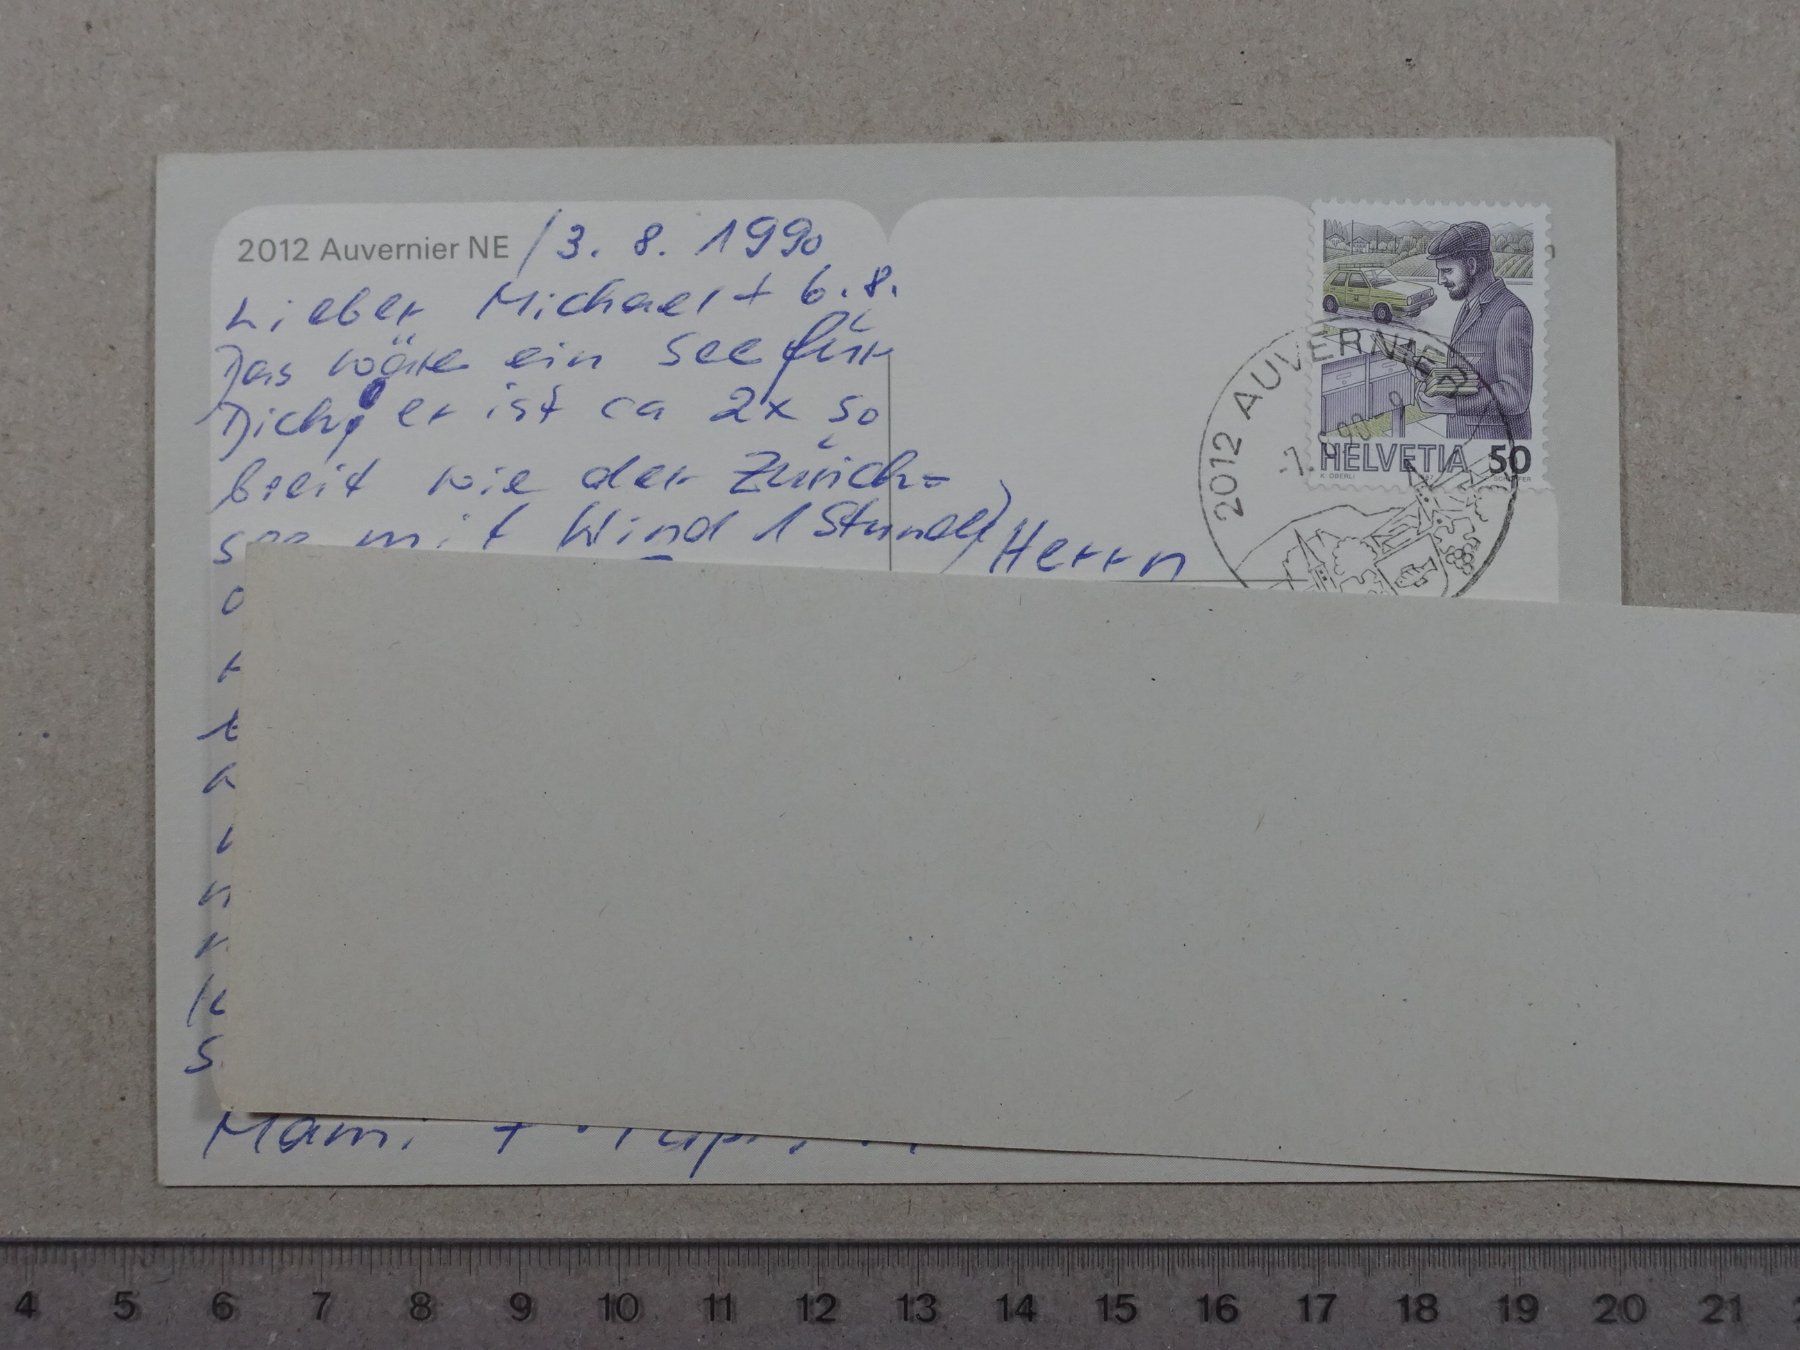 2012 Auvernier NE / 3. 8. 1990
Lieber Michael + 6. 8.
Das wäre ein See für
Dich, er ist ca 2x so
breit wie der Zürich-
see mit Wind 1 Stunde)
Herrn
Mami +
2012 AUVERNIER
HELVETIA 50
K. OBERLI
4 5 6 7 8 9 10 11 12 13 14 15 16 17 18 19 20 21